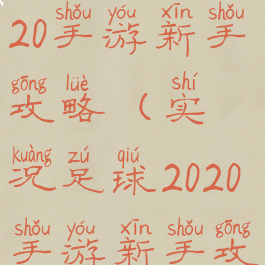 shǒu yóu xīn shǒu
20手游新手
gōng lüè shí
攻略(实
kuàng zú qiú
况足球2020
shǒu yóu xīn shǒu gōng
手游新手攻